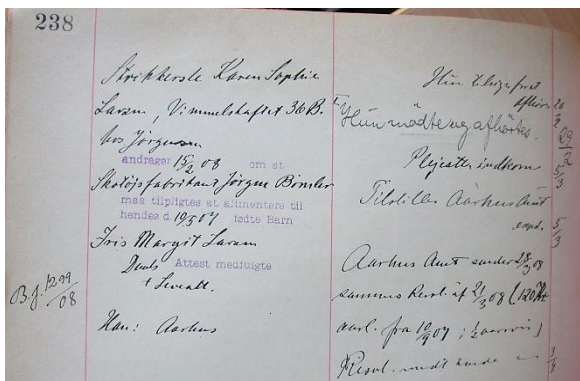 238
Strikkerske Karen Sophie
Larsen, Vimmelskaftet 36 B.
hos Jørgensen
andrager 15/2 08 om at
Skotøjsfabrikant Jørgen
maa tilpligtes at alimentere til
hendes d. 19/5 07 fødte Barn
Iris Margit Larsen
Daabs Attest medfulgte
B.J. 1299/08
Han: Aarhus
Hun
Hun mødte og afhørtes.
29/2
Plejeatt. indkom 5/3
Tilstilles Aarhus Amt
5/3
Aarhus Amt sender 28/3 08
Resol. af 21/3 08 (120 Kr
aarl. fra 10/9 07; 1/2 aarsvis)
Resol.